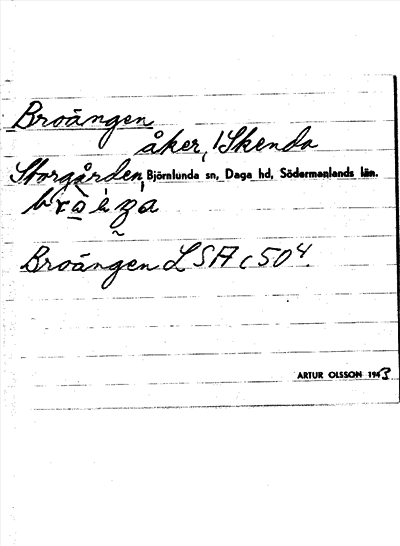 Broängen
åker, 1 Skenda
Storgården, Björnlunda sn, Daga hd, Södermanlands län.
Broängen LSA c 50⁴.
ARTUR OLSSON 1943